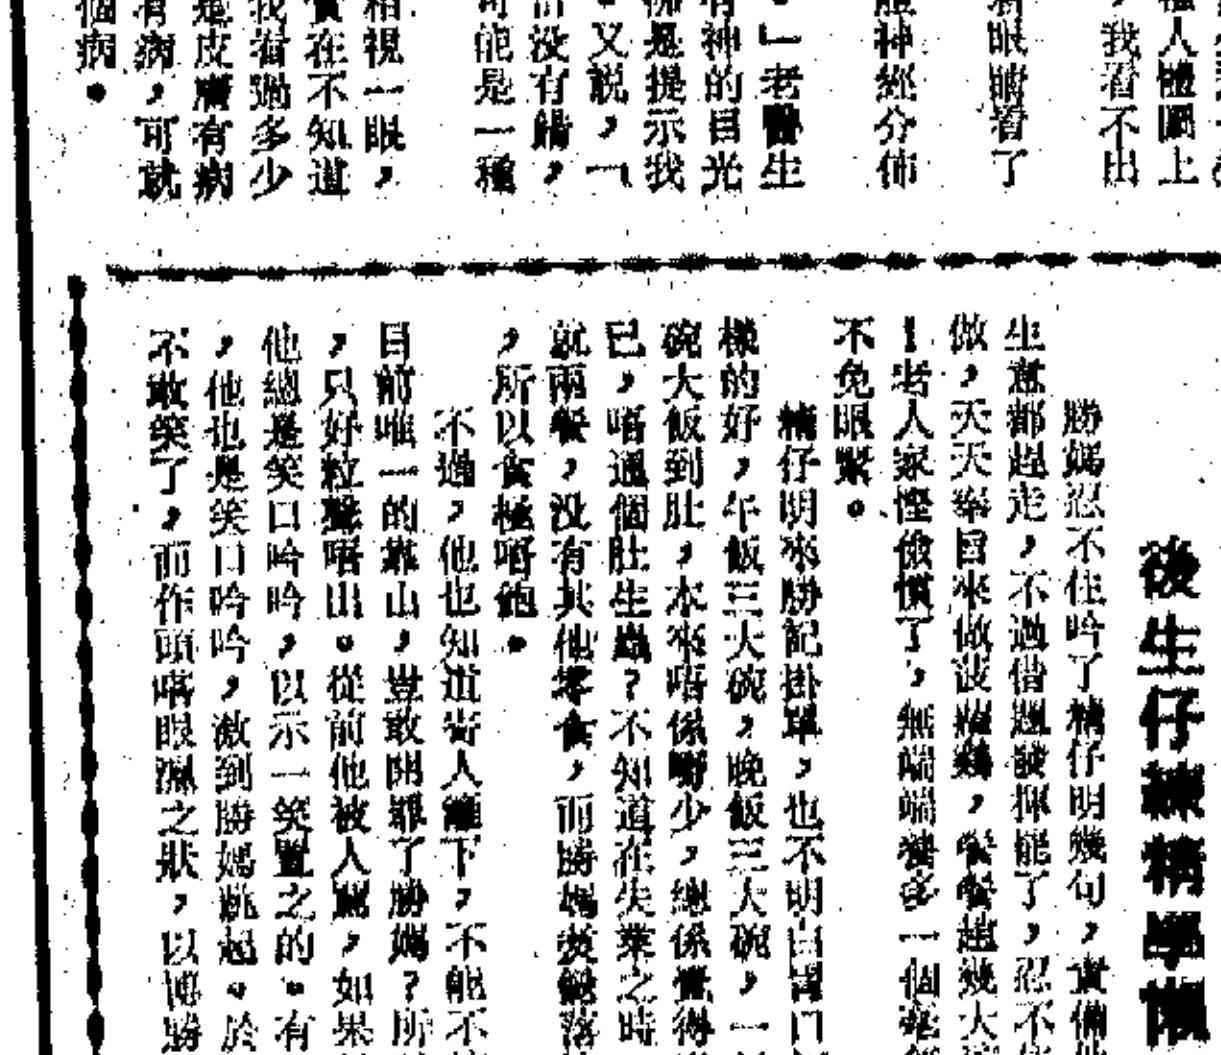 上
人體圖上
，我看不出
眼睛看了
神經分佈
」老醫生
有神的目光
提示我
。又説，「
没有餓，
可能是一種
相視一眼，
實在不知道
我看過多少
是皮膚有病
有病，可就
個病。
後生仔練精學懶
勝媽忍不住吟了精仔明幾句，責備他
生意都趕走，不過借題發揮罷了，忍不
做，天天舉目來做發瘟鷄，餐餐趕幾大
！老人家慳儉慣了，無端端養多一個
不免眼緊。
精仔明來勝記掛單，也不明白胃口
樣的好，午飯三大碗，晚飯三大碗，一
碗大飯到肚，本來唔係嘢少，總係覺得
已，唔通個肚生蟲？不知道在失業之時
就兩餐，没有其他零食，而勝媽煲餸落
，所以食極唔飽。
不過，他也知道寄人籬下，不能不
目前唯一的靠山，豈敢開罪了勝媽？所
，只好粒聲唔出。從前他被人鬧，如果
他總是笑口吟吟，以示一笑置之的。有
，他也是笑口吟吟，激到勝媽跳起。於
不敢笑了，而作頭嗒眼濕之狀，以博勝